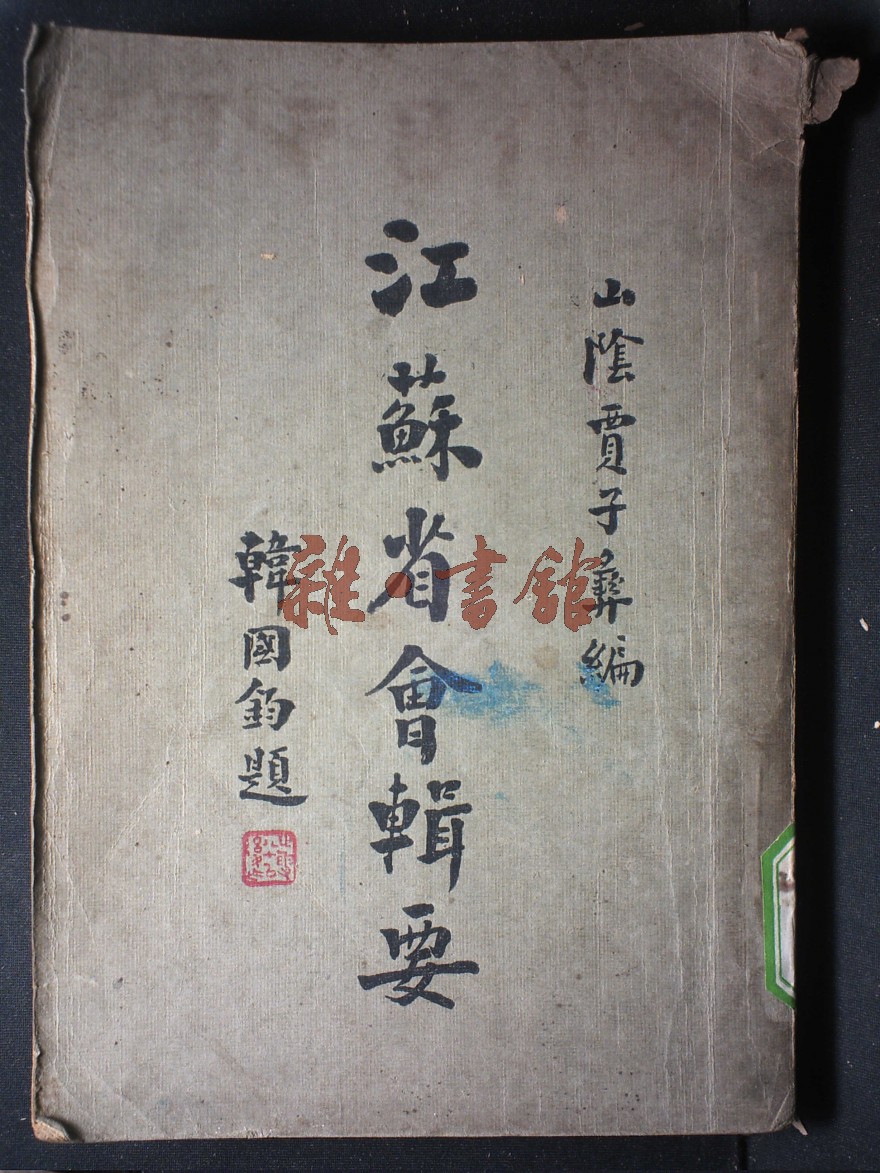 山陰賈子彝編
江蘇省會輯要
韓國鈞題
雜·書館